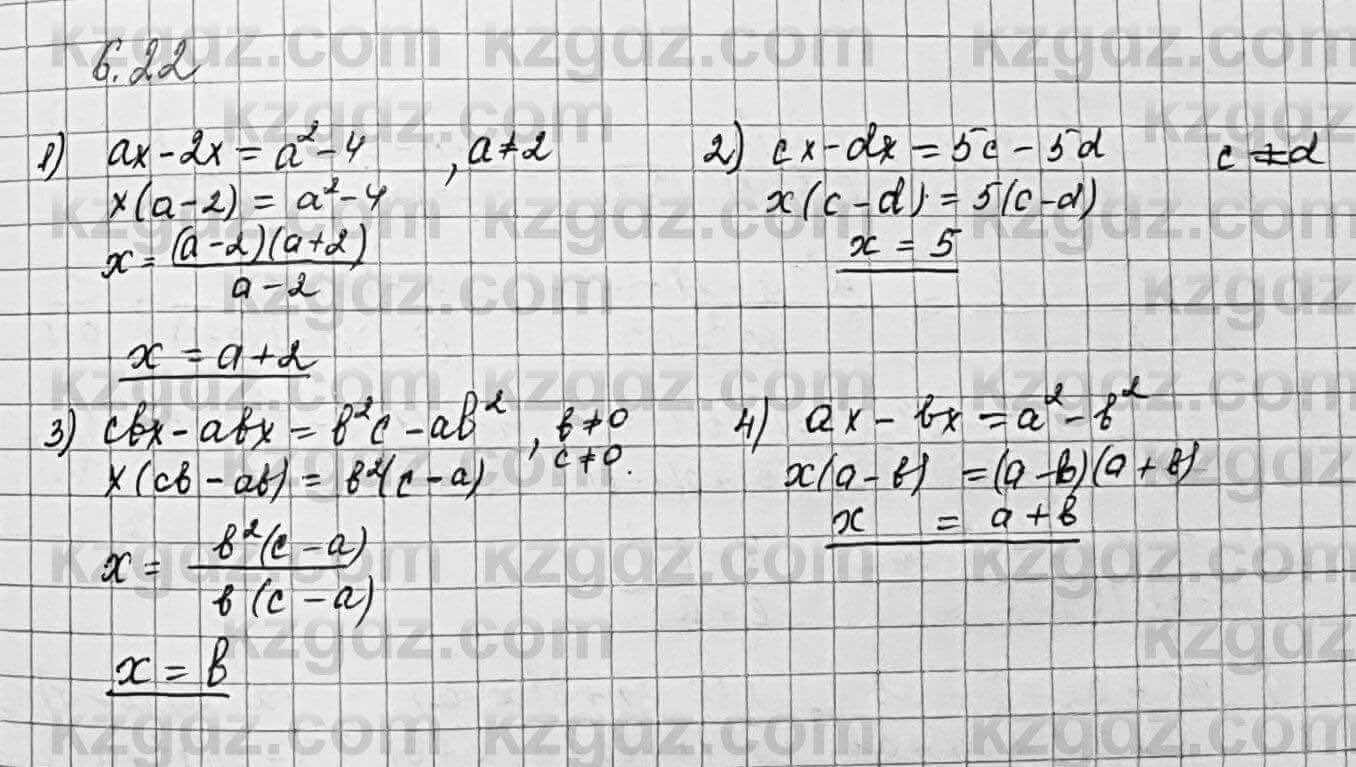 6.22
1) ax - 2x = a² - 4 , a ≠ 2
x(a - 2) = a² - 4
x = (a - 2)(a + 2) / a - 2
x = a + 2
2) cx - dx = 5c - 5d c ≠ d
x(c - d) = 5(c - d)
x = 5
3) cbx - abx = b²c - ab² , b ≠ 0
c ≠ 0.
x(cb - ab) = b²(c - a)
x = b²(c - a) / b(c - a)
x = b
4) ax - bx = a² - b²
x(a - b) = (a - b)(a + b)
x = a + b
kzgdz.com kzgdz.com kzgdz.com
kzgdz.com kzgdz
kzgdz.com kzgdz.com kzgdz.com
kzgdz.com kzgdz
kzgdz.com kzgdz.com kzgdz.com
kzgdz.com kzgdz
kzgdz.com kzgdz.com kzgdz.com
kzgdz.com kzgdz
kzgdz.com kzgdz.com kzgdz.com